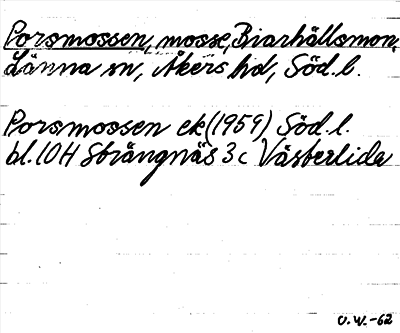 Porsmossen, mosse, Biarhällsmon,
Länna sn, Åkers hd, Söd. l.
Porsmossen ek (1959) Söd. l.
bl. 10H Strängnäs 3c Västerlida
O.W.-62